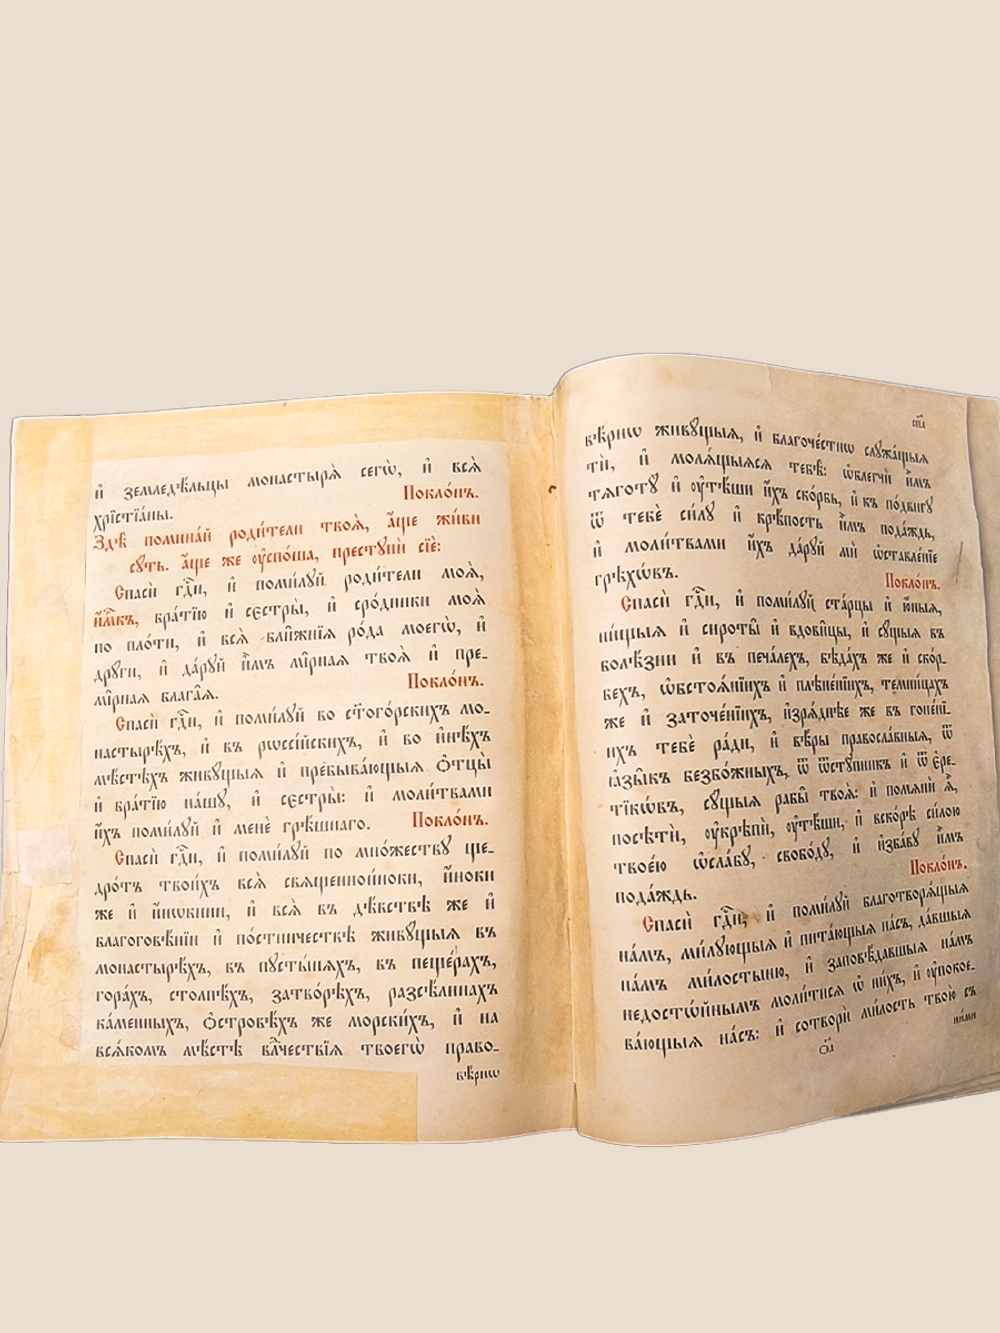 и҆ земледѣ́льцы монастырѧ̀ сегѡ̀, и҆ всѧ̀
хрїстїа́ны. Покло́нъ.
Здѣ̀ помина́й роди́тели твоѧ̑, а҆́ще жи́ви
сꙋ́ть. а҆́ще же ᲂу҆спо́ша, престꙋпѝ сїѐ:
Спасѝ гдⷭ҇и, и҆ поми́лꙋй роди́тели моѧ̑,
и҆́мⷬ҇къ, бра́тїю и҆ сєстры̀, и҆ сро́дники моѧ̑
по пло́ти, и҆ всѧ̑ бли̑жнїѧ ро́да моегѡ̀, и҆
дрꙋ́ги, и҆ да́рꙋй и҆̀мъ ми̑рнаѧ твоѧ̑ и҆ пре-
ми̑рнаѧ блага̑ѧ. Покло́нъ.
Спасѝ гдⷭ҇и, и҆ поми́лꙋй во ст҃ого́рскихъ мо-
настырѣ́хъ, и҆ въ рѡссі́йскихъ, и҆ во и҆нѣ́хъ
мѣ́стѣхъ живꙋ́щыѧ и҆ пребыва́ющыѧ ѻ҆тцы̀
и҆ бра́тїю на́шꙋ, и҆ сєстры̀: и҆ моли́твами
и҆́хъ поми́лꙋй и҆ менѐ грѣ́шнаго. Покло́нъ.
Спасѝ гдⷭ҇и, и҆ поми́лꙋй по мно́жествꙋ ще-
дро́тъ твои́хъ всѧ̑ сващенноино́ки, и҆́ноки
же и҆ и҆́нѡкини, и҆ всѧ̑ въ дѣ́вствѣ же и҆
благоговѣ́нїи и҆ по́стничествѣ живꙋ́щыѧ въ
монастырѣ́хъ, въ пꙋсты́нѧхъ, въ пеще́рахъ,
гора́хъ, столпѣ́хъ, затво́рѣхъ, разсѣ́линахъ
ка́менныхъ, ѻ҆́стровѣхъ же морски́хъ, и҆ на
всѧ́комъ мѣ́стѣ влⷣчествїѧ твоегѡ̀ право-
вѣ́рнѡ
сп҃а
вѣ́рнѡ живꙋ́щыѧ, и҆ благоче́стнѡ слꙋжа́щыѧ
тѝ, и҆ молѧ́щыѧсѧ тебѣ̀: ѡ҆блегчѝ и҆̀мъ
тѧготꙋ̀ и҆ ᲂу҆тѣ́ши и҆́хъ ско́рбь, и҆ къ по́двигꙋ
ѿ тебѐ си́лꙋ и҆ крѣ́пость и҆̀мъ пода́ждь,
и҆ моли́твами и҆́хъ да́рꙋй мѝ ѡ҆ставле́нїе
грѣхѡ́въ. Покло́нъ.
Спасѝ гдⷭ҇и, и҆ поми́лꙋй ста́рцы и҆ ю҆́ныѧ,
ни́щыѧ и҆ сироты̑ и҆ вдови̑цы, и҆ сꙋ́щыѧ въ
болѣ́зни и҆ въ печа́лехъ, бѣда́хъ же и҆ ско́р-
бехъ, ѡ҆бстоѧ́нїихъ и҆ плѣне́нїихъ, темни́цахъ
же и҆ заточе́нїихъ, и҆зрѧ́днѣе же въ гоне́нї-
ихъ тебѐ ра́ди, и҆ вѣ́ры правосла́вныѧ, ѿ
ꙗ҆зы̑къ безбо́жныхъ, ѿ ѿстꙋ̑пникъ и҆ ѿ є҆ре-
тїкѡ́въ, сꙋ́щыѧ рабы̑ твоѧ̑: и҆ помѧнѝ ѧ҆̀,
посѣтѝ, ᲂу҆крѣпѝ, ᲂу҆тѣ́ши, и҆ вско́рѣ си́лою
твое́ю ѡ҆сла́бꙋ, свобо́дꙋ, и҆ и҆зба́вꙋ и҆̀мъ
пода́ждь. Покло́нъ.
Спасѝ гдⷭ҇и, и҆ поми́лꙋй благотворѧ́щыѧ
на́мъ, ми́лꙋющыѧ и҆ пита́ющыѧ на́съ, да́вшыѧ
на́мъ ми́лостыню, и҆ заповѣ́давшыѧ на́мъ
недостѡ́йнымъ моли́тисѧ ѡ҆ ни́хъ, и҆ ᲂу҆покое-
ва́ющыѧ на́съ: и҆ сотворѝ ми́лость твою̀ съ
ни́ми